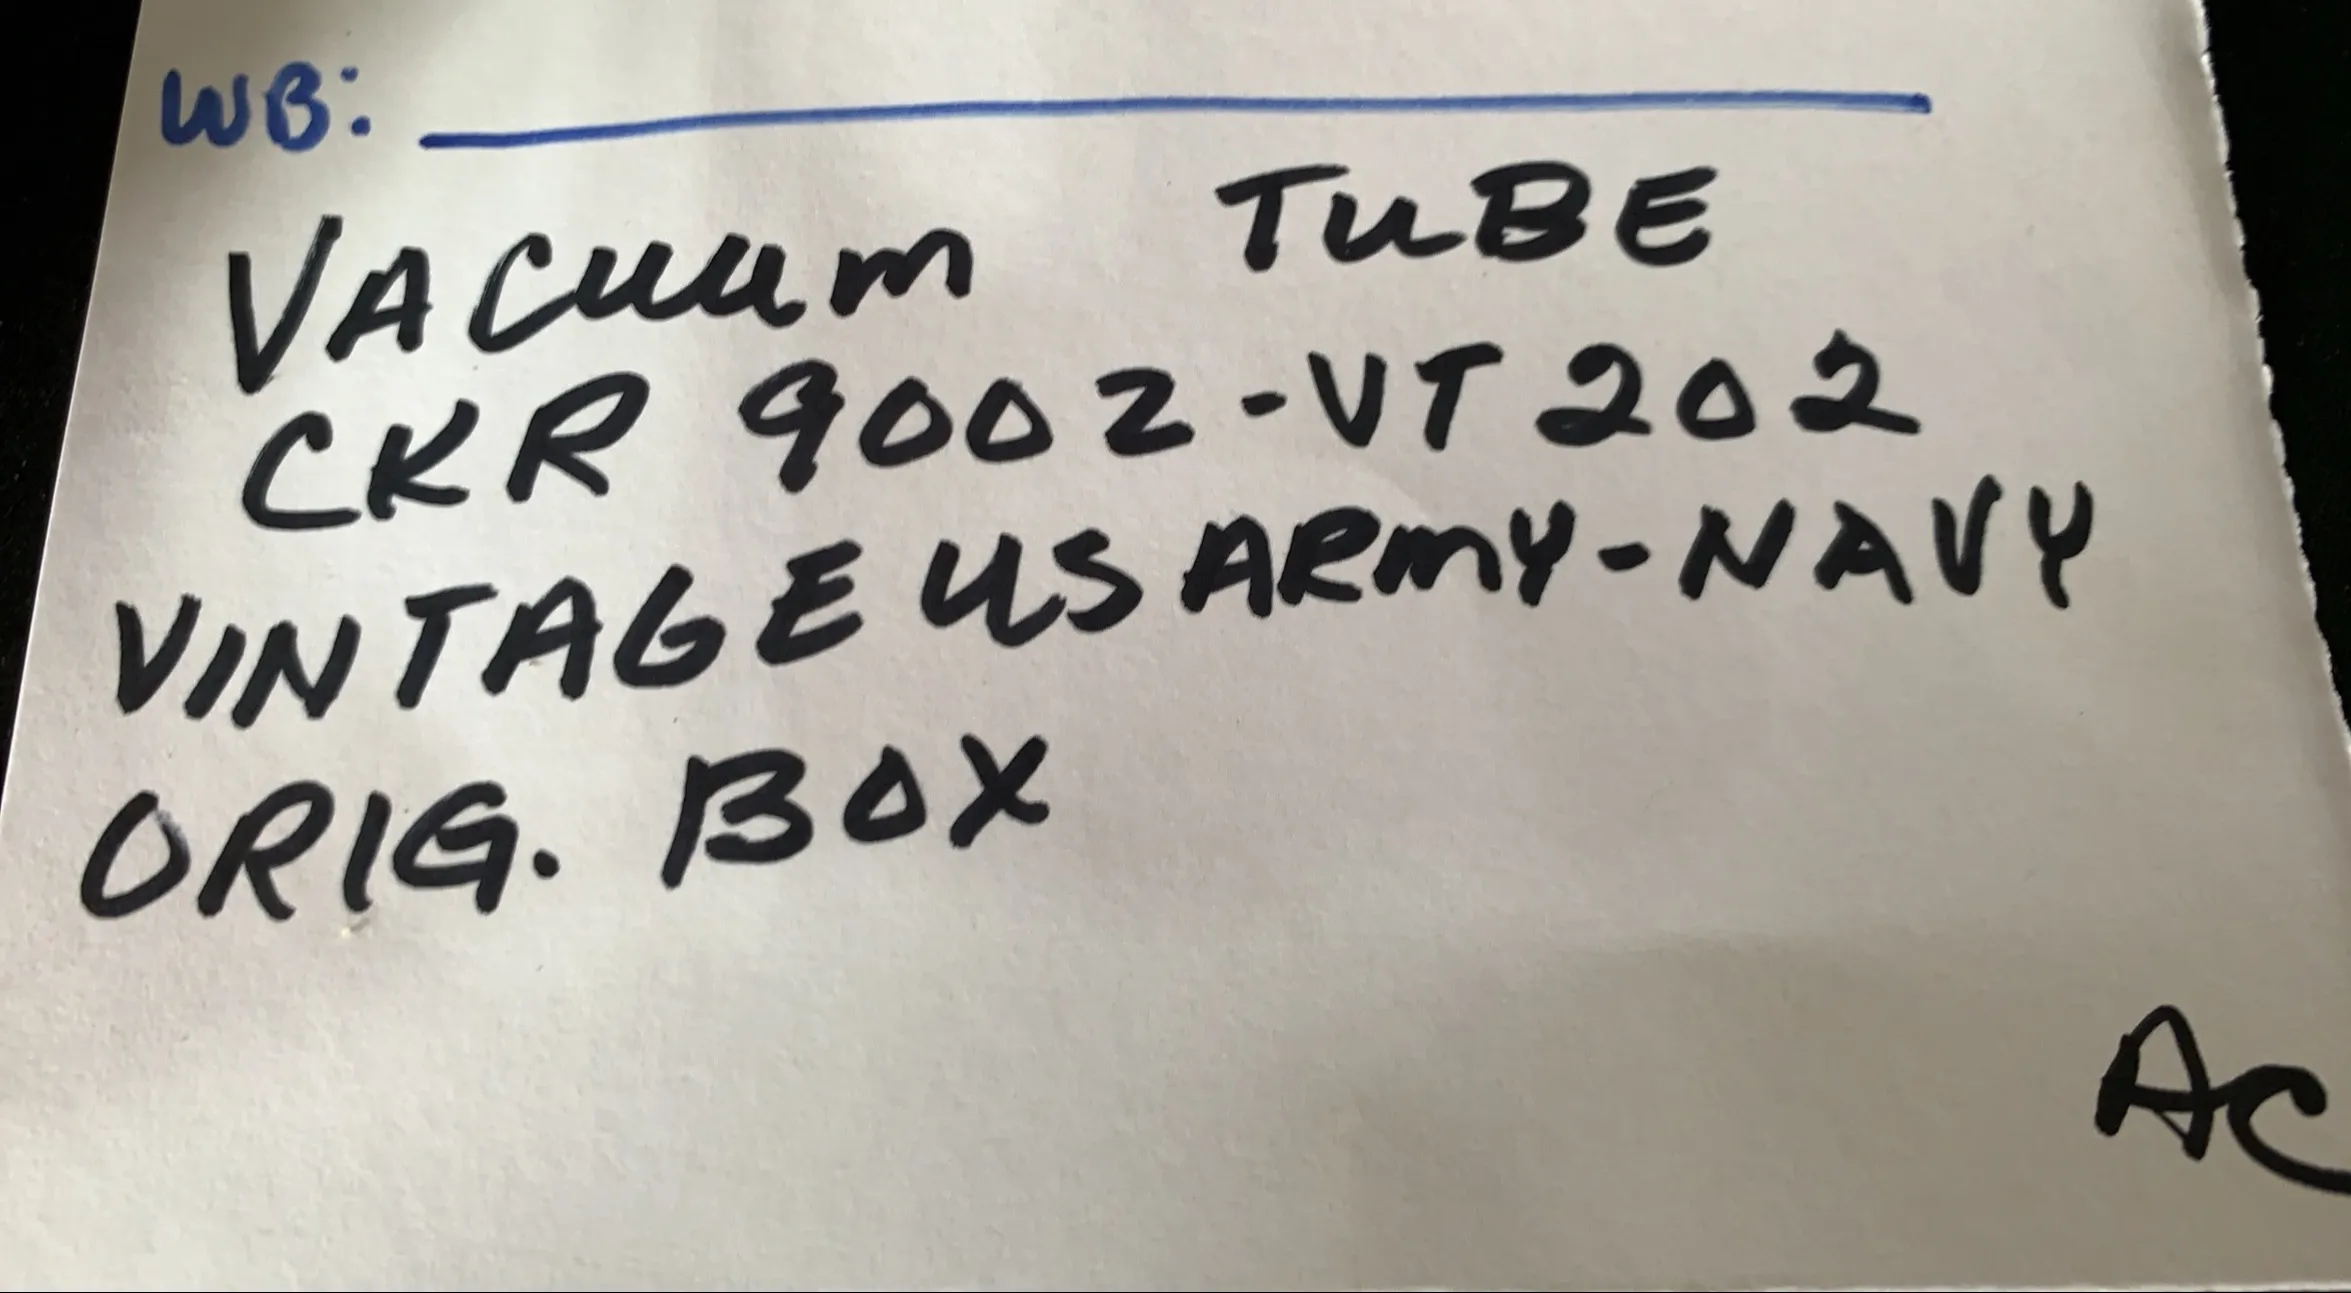 WB:
VACUUM TUBE
CKR 9002-VT 202
VINTAGE US ARMY-NAVY
ORIG. BOX
AC